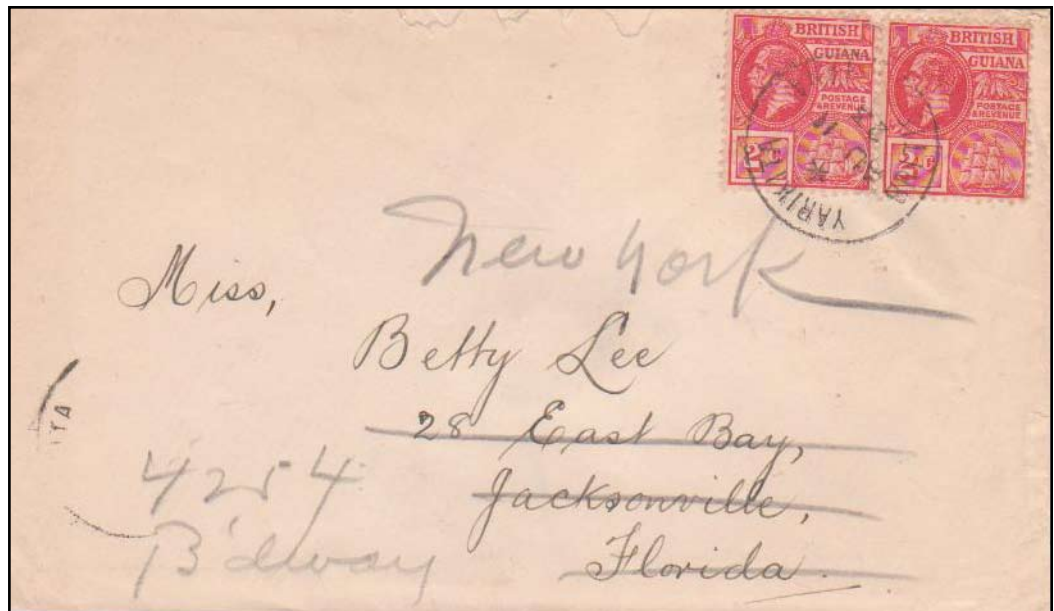 BRITISH
GUIANA
POSTAGE
& REVENUE
2c
BRITISH
GUIANA
POSTAGE
& REVENUE
2c
YARIKITA
AU
23
New York
Miss,
Betty Lee
28 East Bay,
Jacksonville,
Florida.
ITA
4254
B'dway